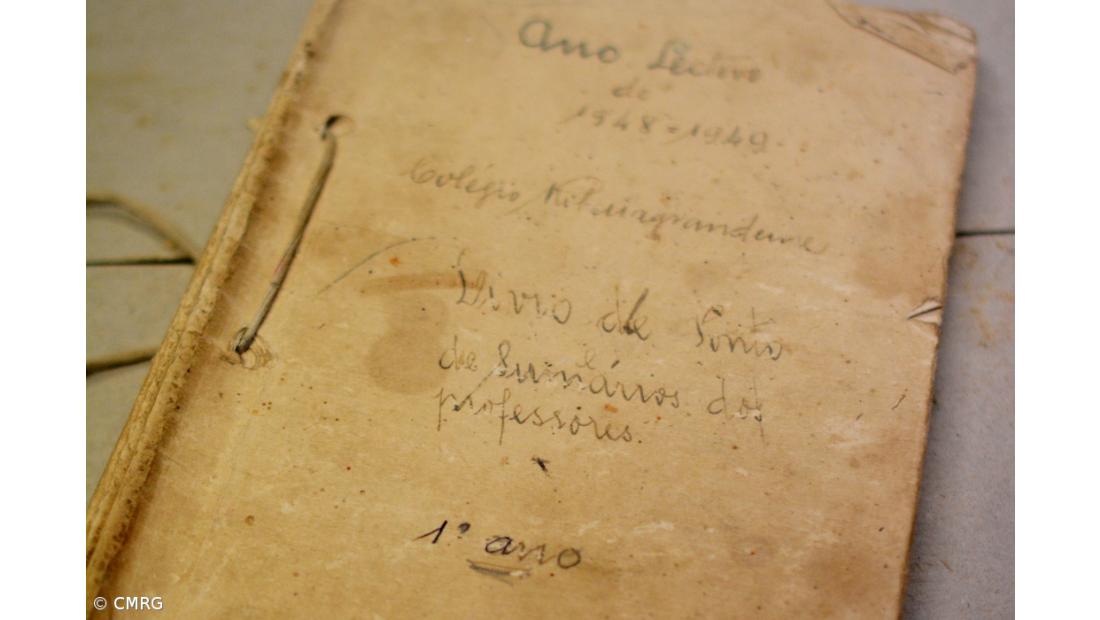 Ano Lectivo
de
1948=1949.
Colégio Ribeiragrandense
Livro de Ponto
de Sumários dos
professores.
1º ano
© CMRG